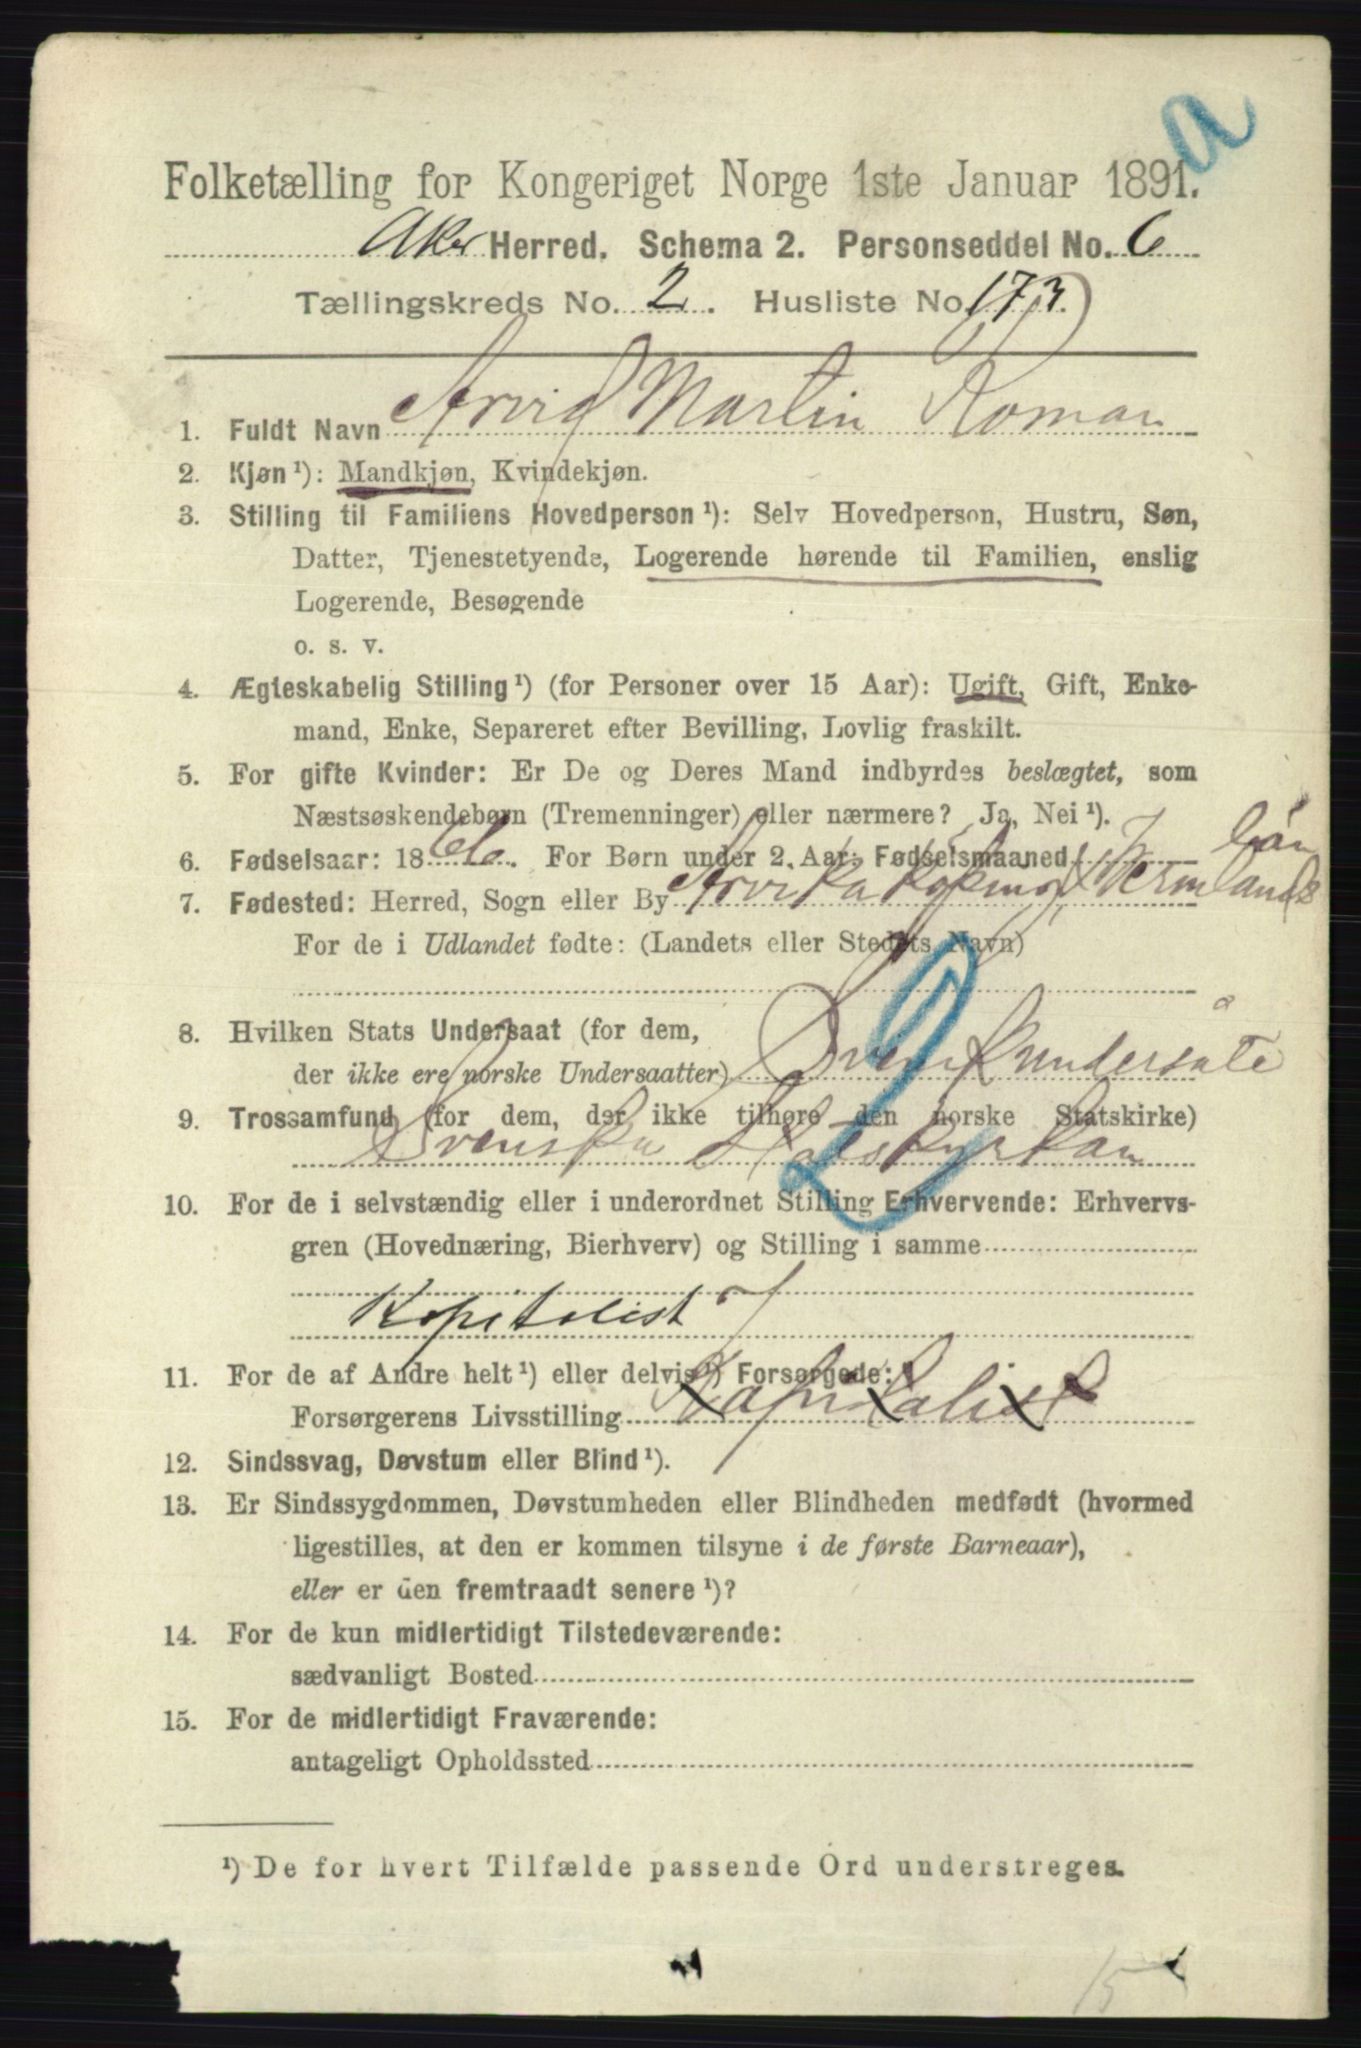 a
Folketælling for Kongeriget Norge 1ste Januar 1891.
Aker Herred. Schema 2. Personseddel No. 6
Tællingskreds No. 2. Husliste No. 173.
1. Fuldt Navn Arvid Martin Roman
2. Kjøn ¹): Mandkjøn, Kvindekjøn.
3. Stilling til Familiens Hovedperson ¹): Selv Hovedperson, Hustru, Søn,
Datter, Tjenestetyende, Logerende hørende til Familien, enslig
Logerende, Besøgende
o. s. v.
4. Ægteskabelig Stilling ¹) (for Personer over 15 Aar): Ugift, Gift, Enke-
mand, Enke, Separeret efter Bevilling, Lovlig fraskilt.
5. For gifte Kvinder: Er De og Deres Mand indbyrdes beslægtet, som
Næstsøskendebørn (Tremenninger) eller nærmere? Ja, Nei ¹).
6. Fødselsaar: 1866. For Børn under 2 Aar: Fødselsmaaned län
7. Fødested: Herred, Sogn eller By Arvika Köping Vermlands
For de i Udlandet fødte: (Landets eller Stedets Navn)
8. Hvilken Stats Undersaat (for dem,
der ikke ere norske Undersaatter) Svensk undersåte
9. Trossamfund (for dem, der ikke tilhøre den norske Statskirke)
Svenska Statskyrkan
10. For de i selvstændig eller i underordnet Stilling Erhvervende: Erhvervs-
gren (Hovednæring, Bierhverv) og Stilling i samme
Kapitalist
11. For de af Andre helt ¹) eller delvis ¹) Forsørgede:
Forsørgerens Livsstilling Kapitalist
12. Sindssvag, Døvstum eller Blind ¹).
13. Er Sindssygdommen, Døvstumheden eller Blindheden medfødt (hvormed
ligestilles, at den er kommen tilsyne i de første Barneaar),
eller er den fremtraadt senere ¹)?
14. For de kun midlertidigt Tilstedeværende:
sædvanligt Bosted
15. For de midlertidigt Fraværende:
antageligt Opholdssted
¹) De for hvert Tilfælde passende Ord understreges.
15